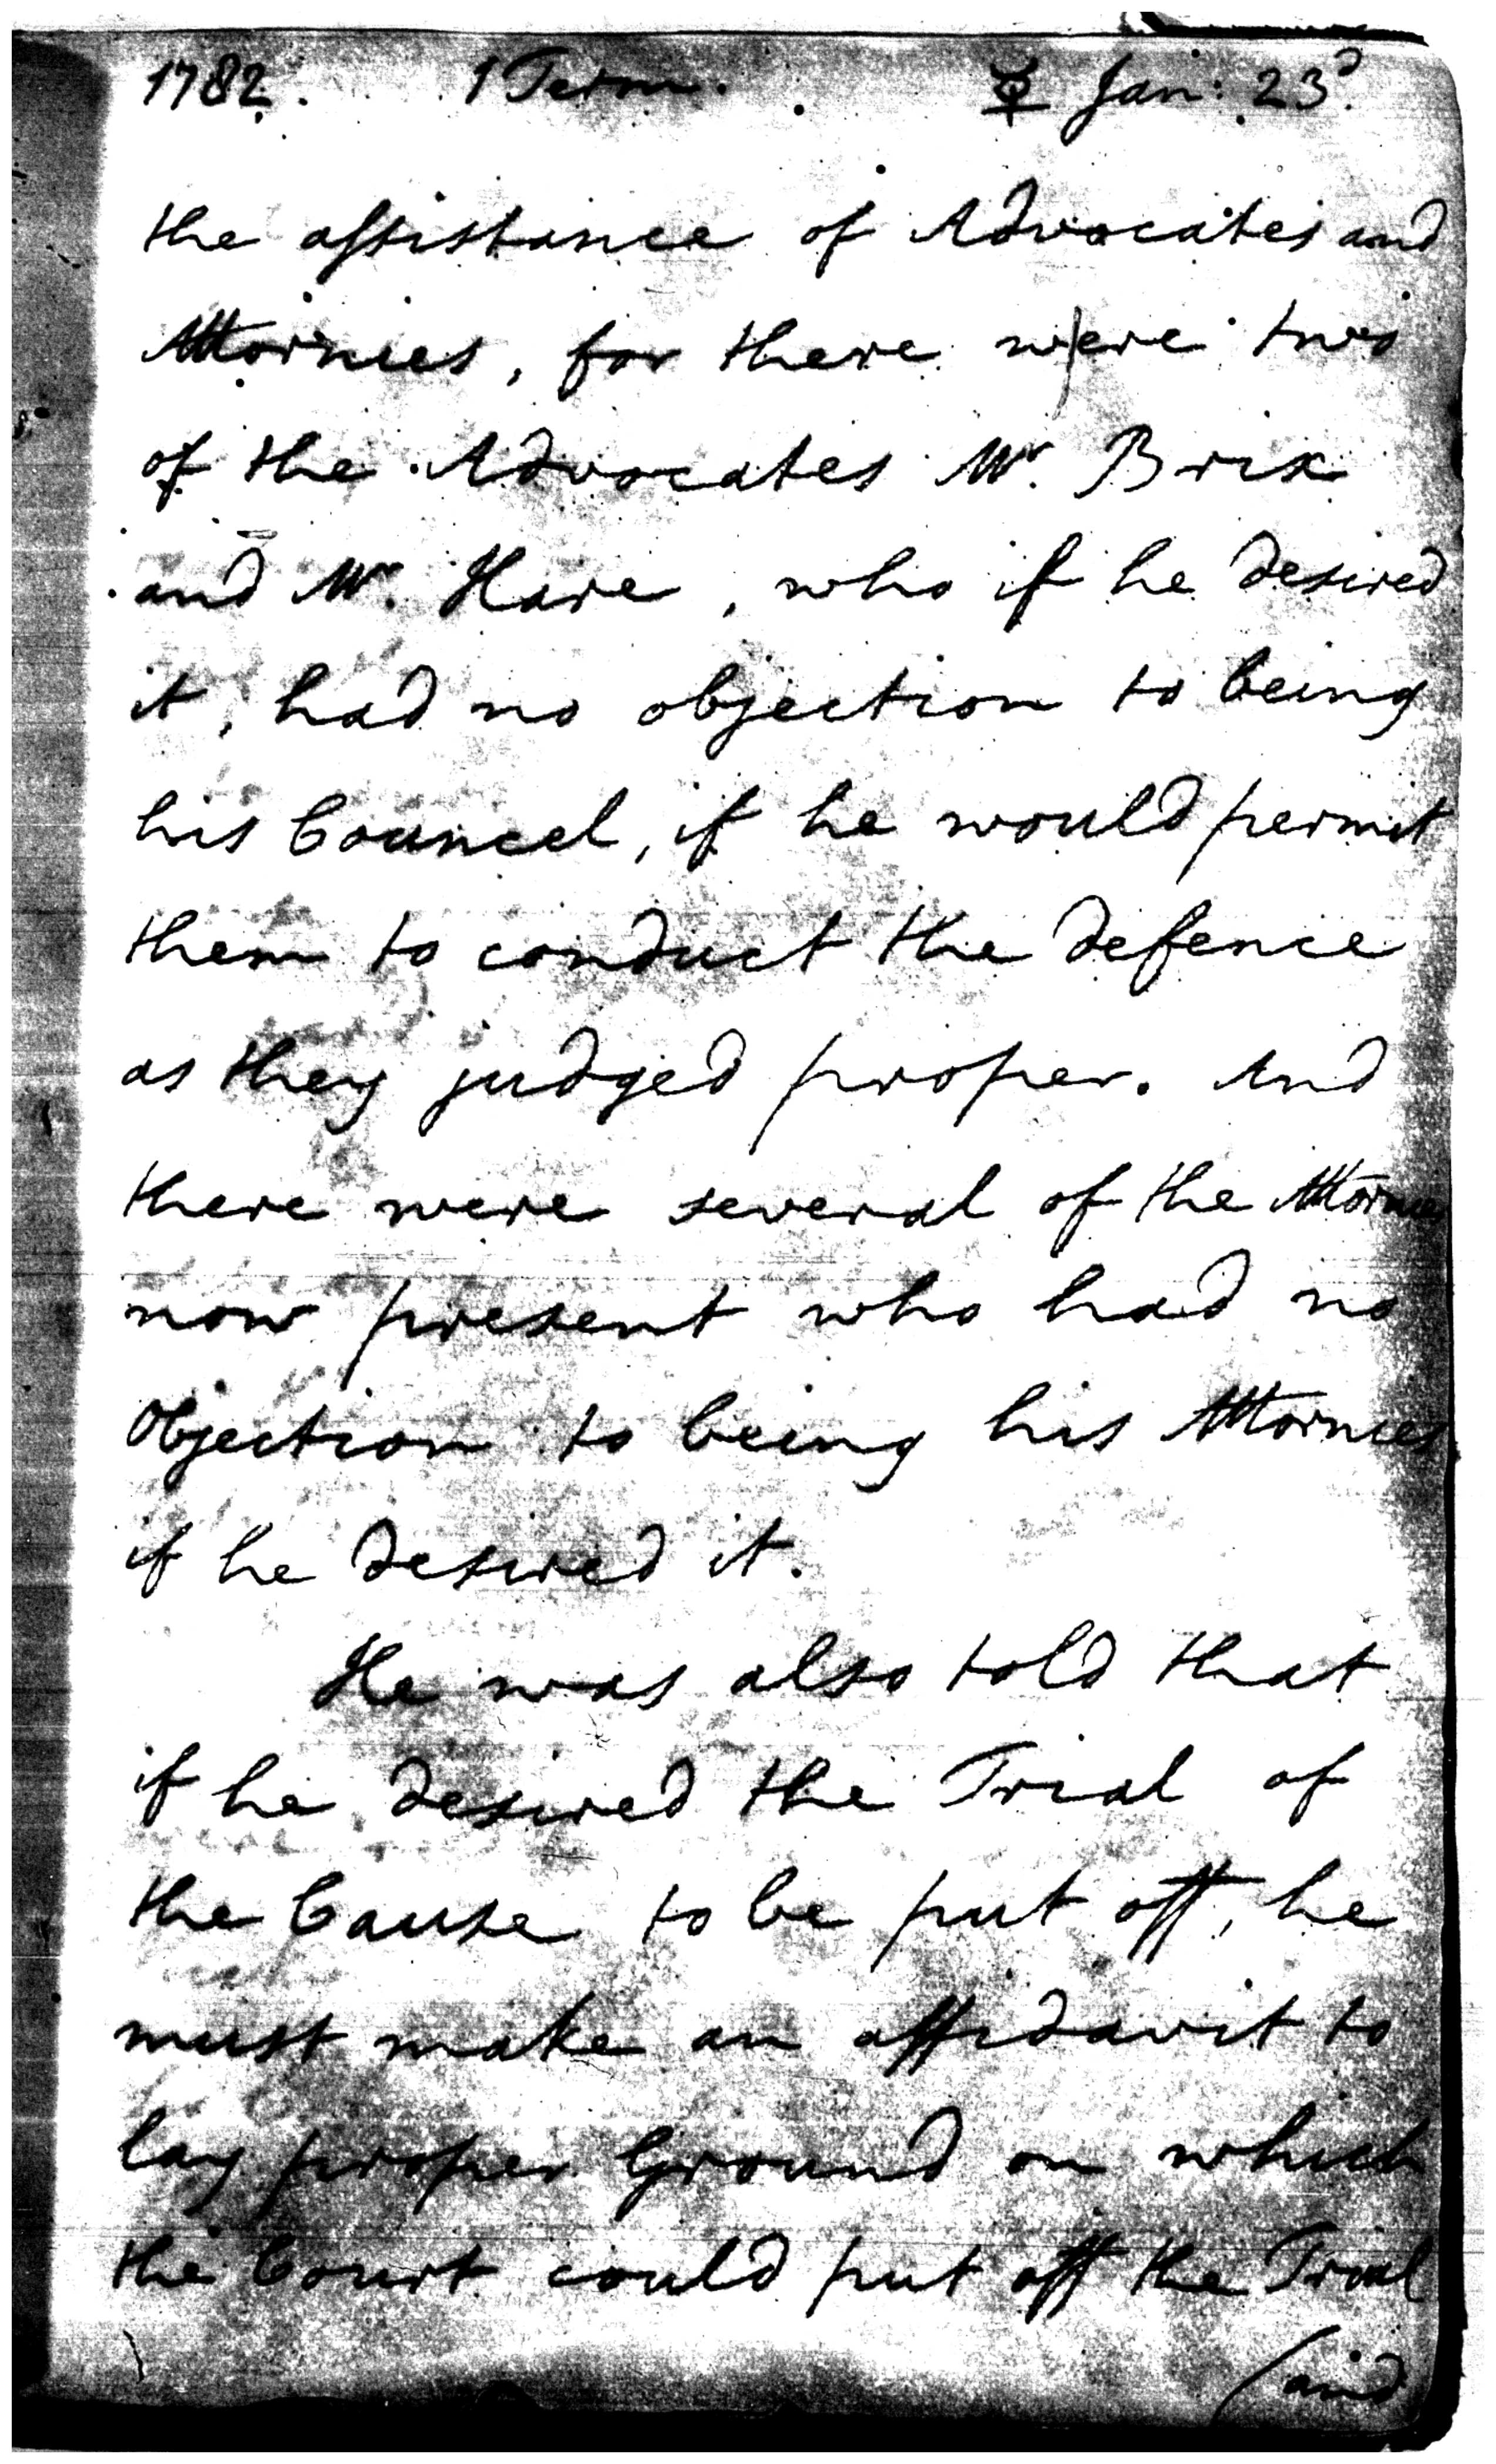 1782. 1 Term. ☿ Jan: 23d.
the assistance of Advocates and
Attornies, for there were two
of the Advocates Mr. Brix
and Mr. Hare, who if he desired
it, had no objection to being
his Councel, if he would permit
them to conduct the defence
as they judged proper. And
there were several of the Attornies
now present who had no
Objection to being his Attornies
if he desired it.
He was also told that
if he desired the Trial of
the Cause to be put off, he
must make an affidavit to
lay proper Ground on which
the Court could put off the Trial
(and